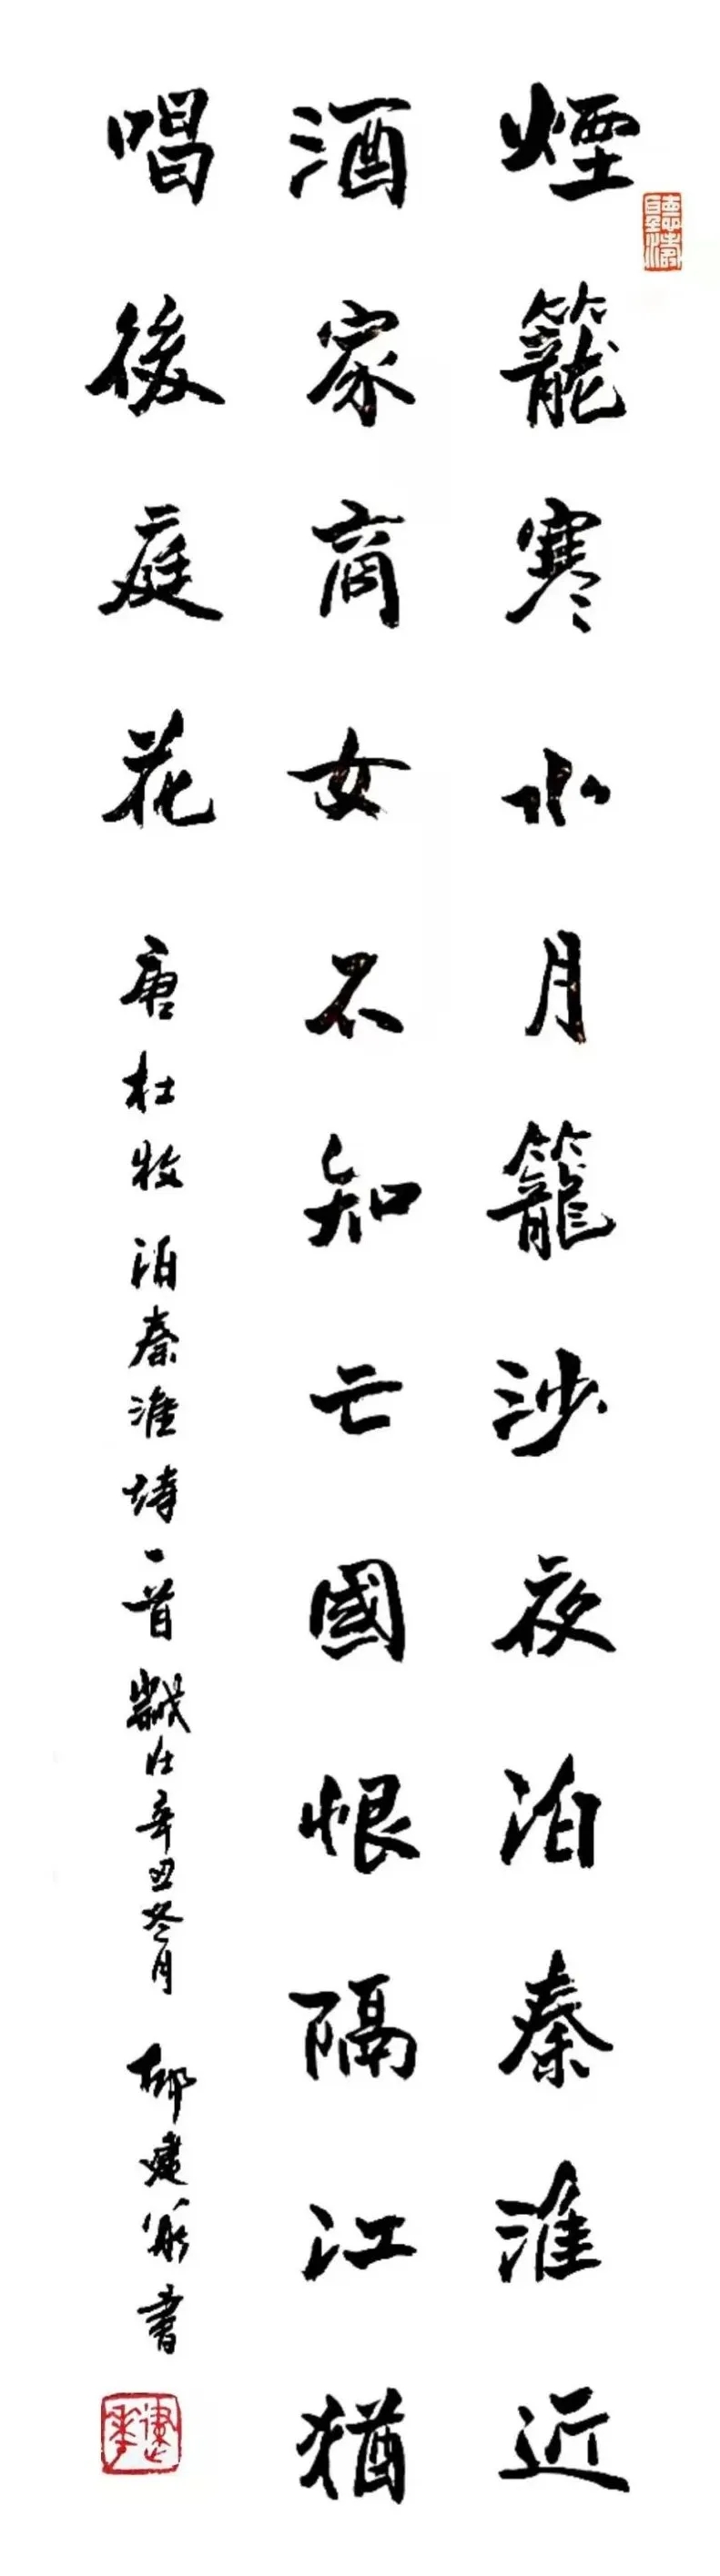 聽濤
煙籠寒水月籠沙夜泊秦淮近
酒家商女不知亡國恨隔江猶
唱後庭花 唐杜牧泊秦淮詩一首歲在辛丑冬月 建書